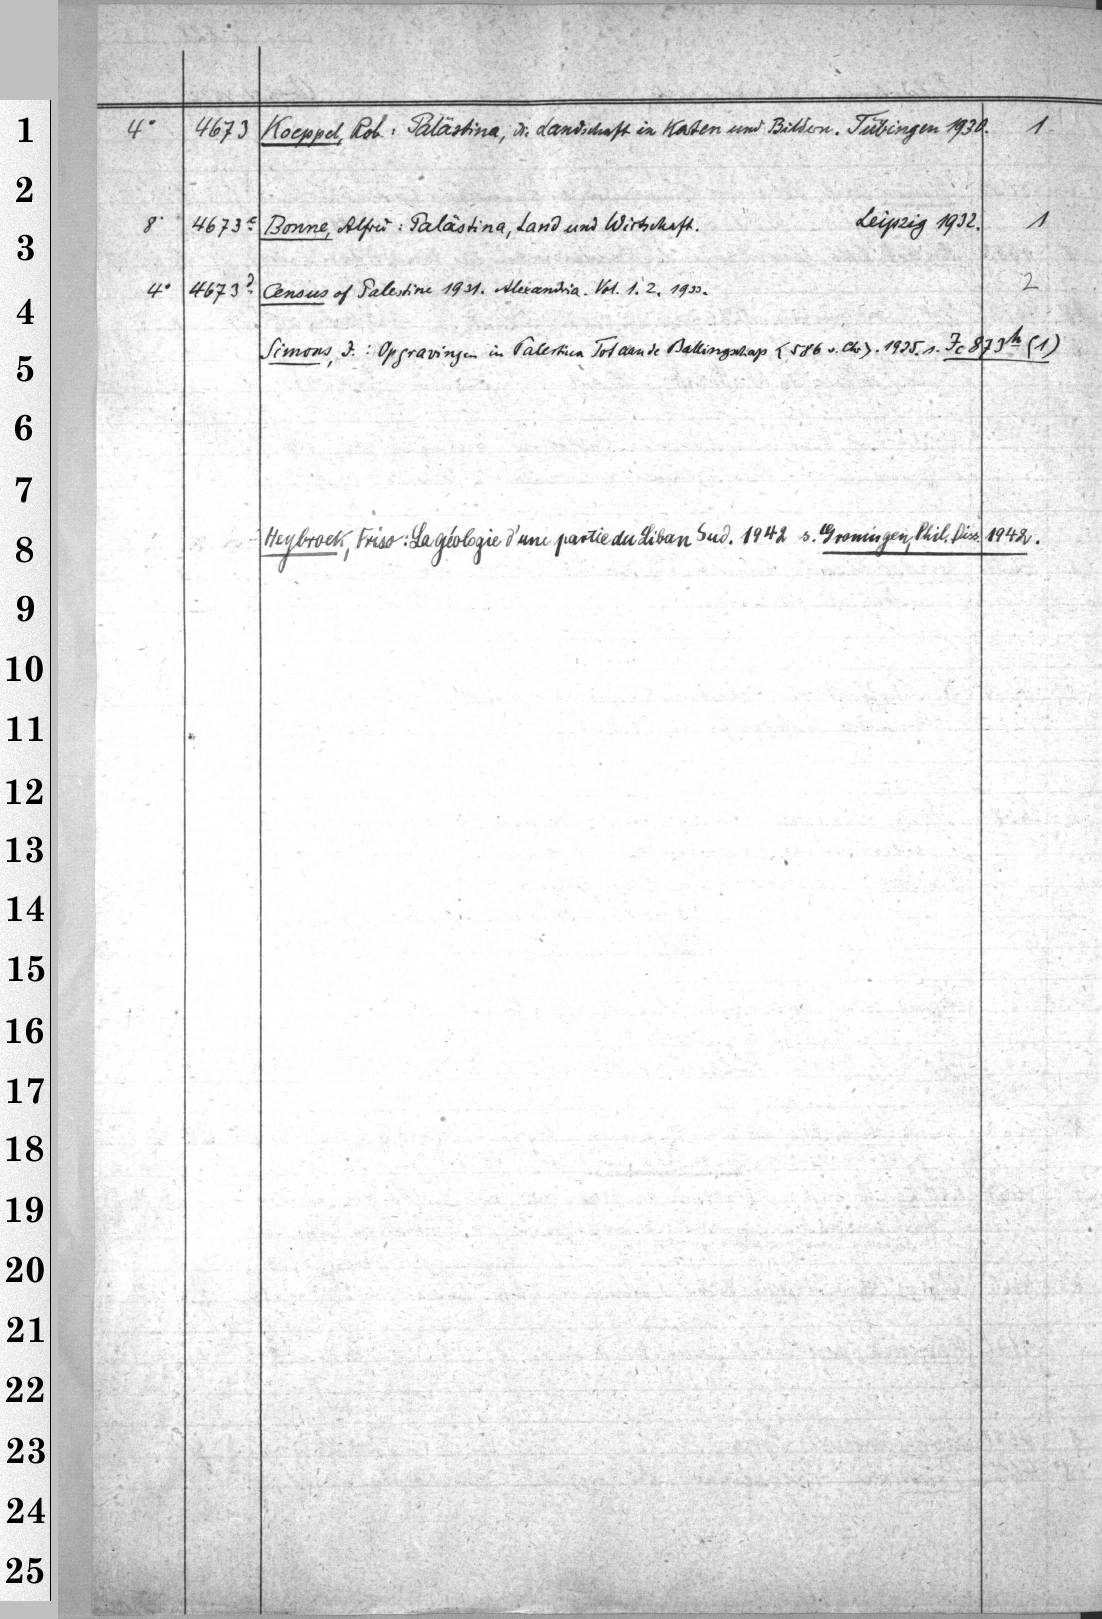 1
4° 4673 Koeppel, Rob.: Palästina, die Landschaft in Karten und Bildern. Tübingen 1930. 1
2
8° 4673 Bonne, Alfred: Palästina, Land und Wirtschaft. Leipzig 1932. 1
3
4° 4673 Census of Palestine 1931. Alexandria. Vol. 1. 2. 1933. 2
4
Simons, J.: Opgravingen in Palestina Tot aan de Ballingschap (586 v. Chr). 1935. s. Jc 873h (1)
5
6
7
Heybroek, Friso: La géologie d'une partie du Liban Sud. 1942 s. Groningen, Phil. Diss. 1942.
8
9
10
11
12
13
14
15
16
17
18
19
20
21
22
23
24
25